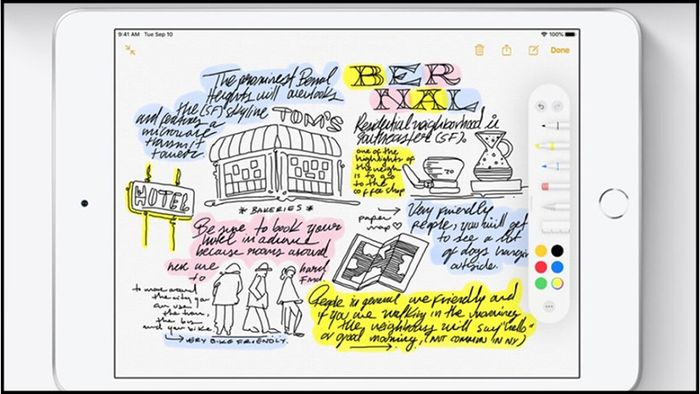 9:41 AM Tue Sep 10
100%
Done
The prominent Bernal
Heights hill overlooks
the (SF) skyline
and features a
microwave
transmit
tower
BER
NAL
TOM'S
Residential neighborhood in
southeastern (SF).
one of the
highlights of
the neigh
is to go
to the
coffee shop
HOTEL
* BAKERIES *
paper
map
Very friendly
people, you will get
to see a lot
of dogs hanging
outside.
Be sure to book your
hotel in advance
because rooms around
here are
to
hard
find.
to move around
the city you
can use
the tram,
the bus
and your bike.
→ VERY BIKE FRIENDLY.
People in general are friendly and
if you are walking in the mornings
the neighbors will say "hello"
or good morning, (NOT COMMON IN NY)